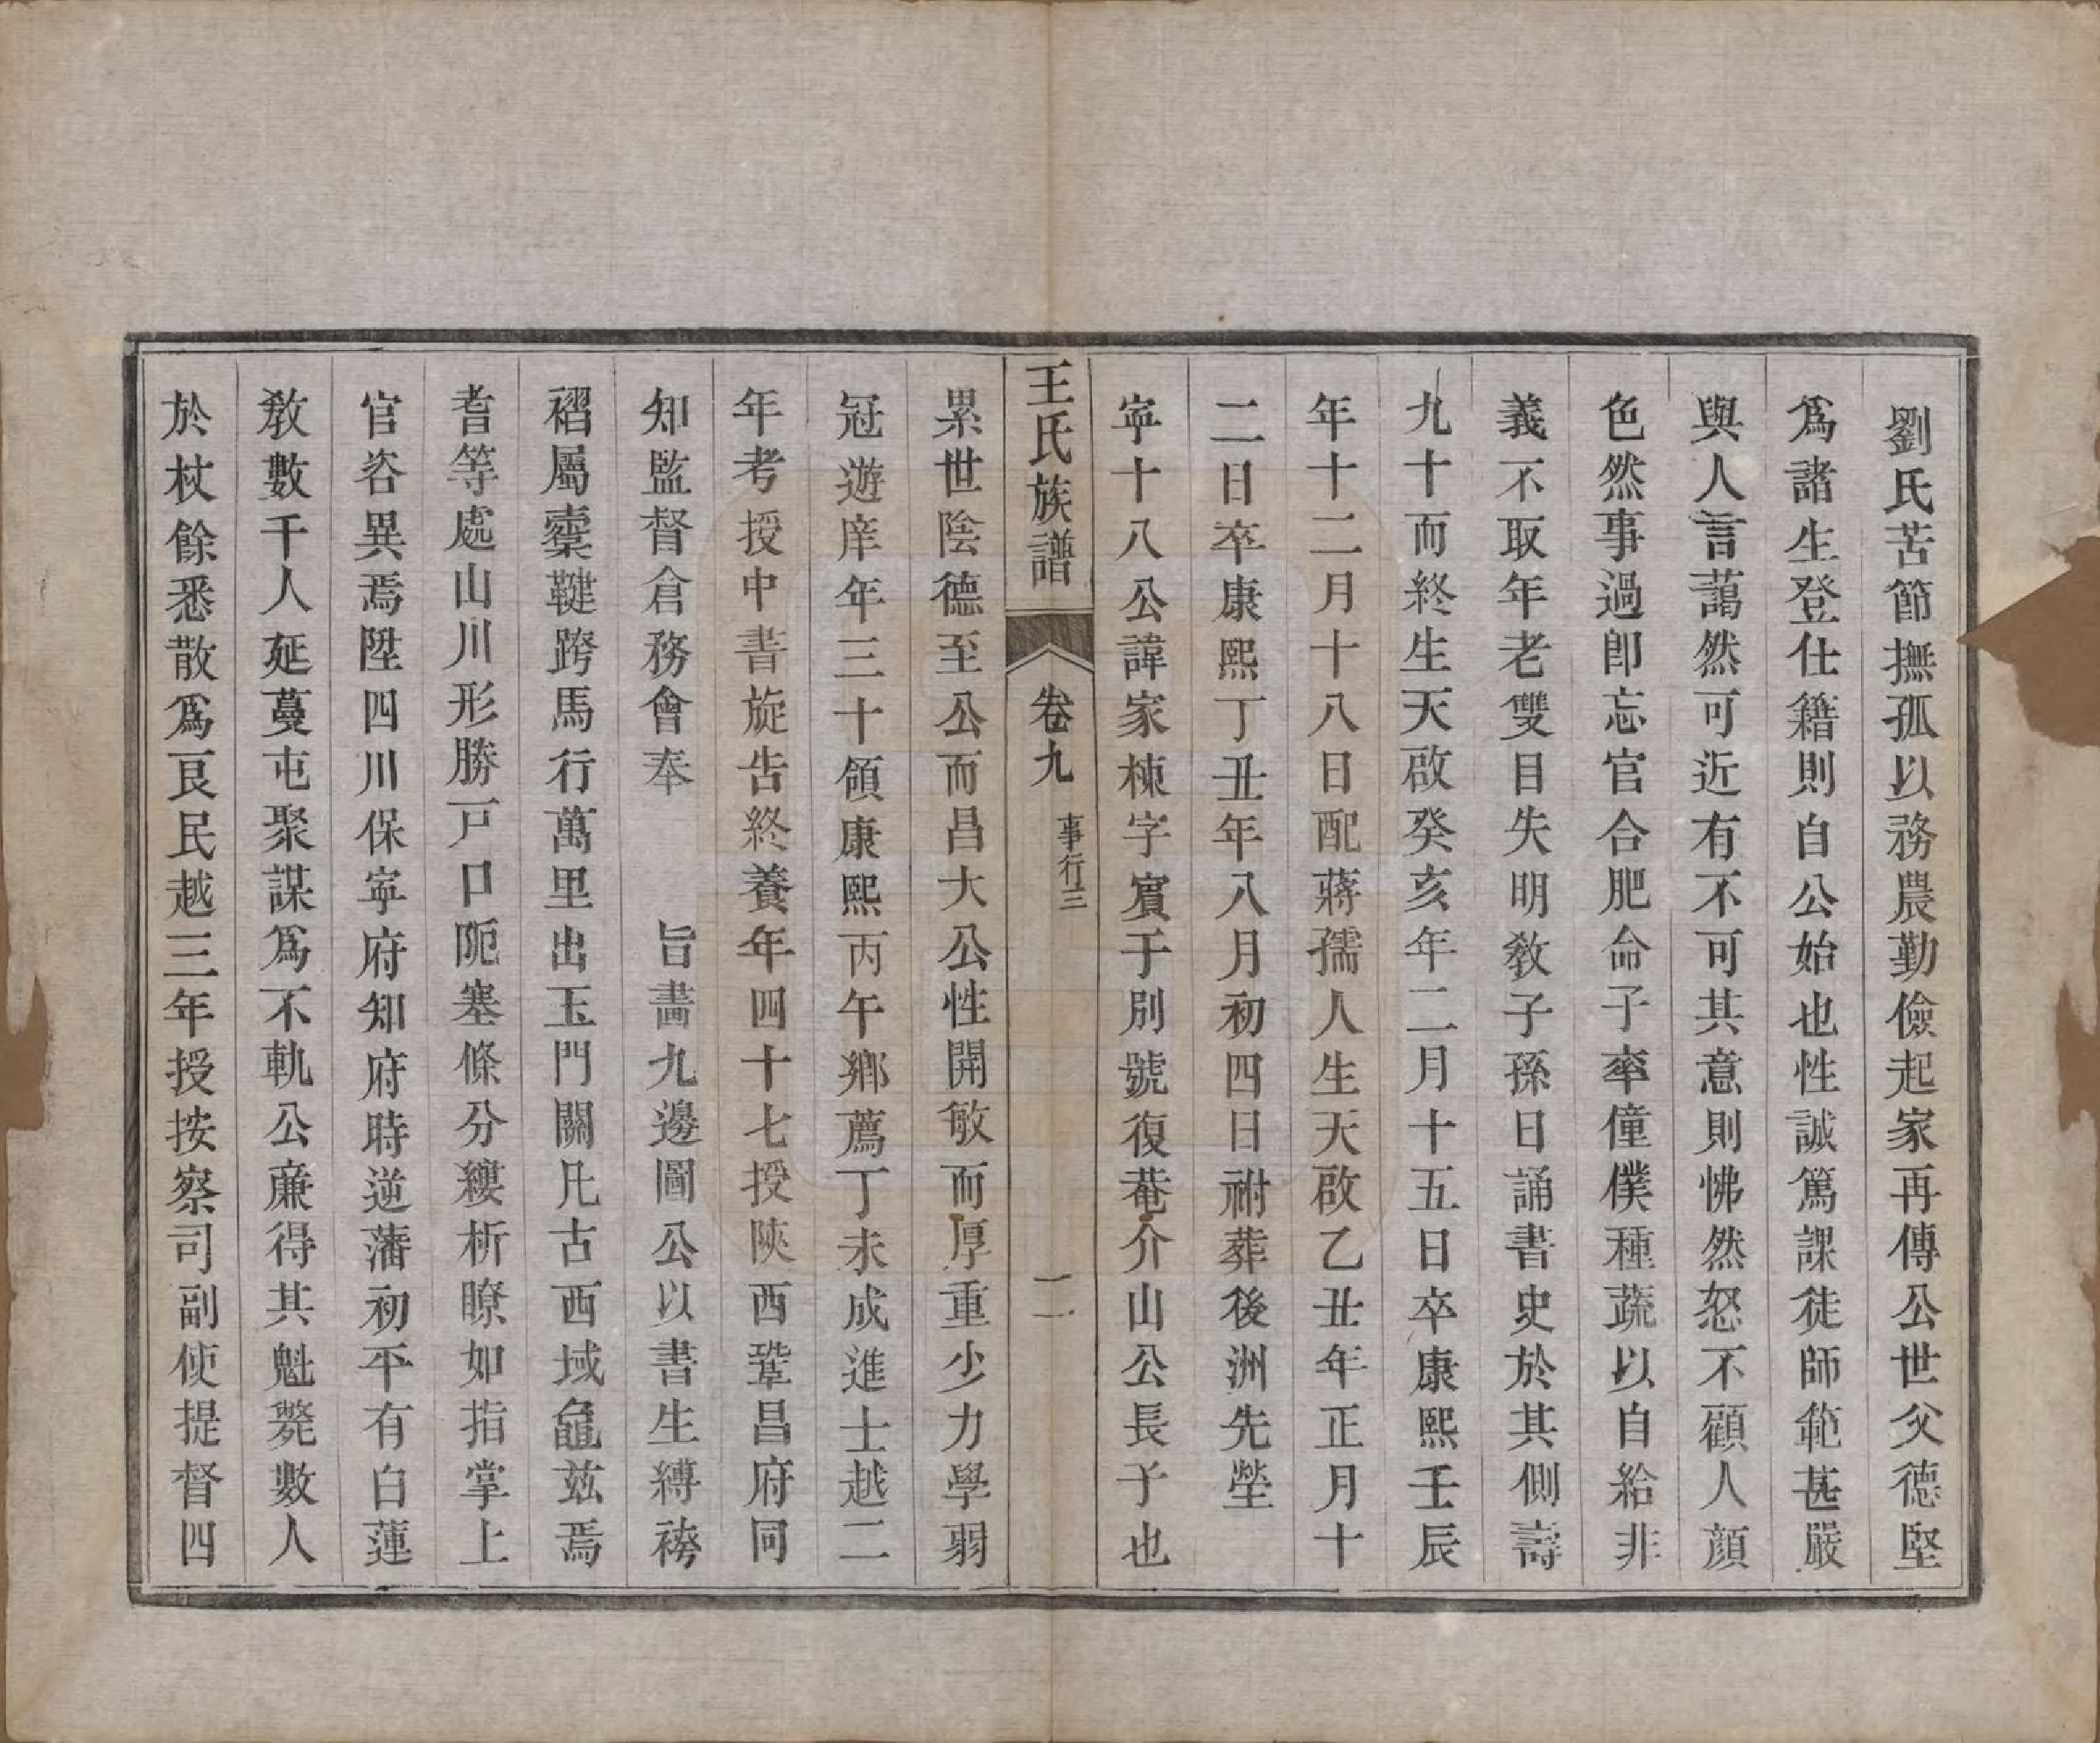 劉氏苦節撫孤以務農勤儉起家再傳公世父德堅
爲諸生登仕籍則自公始也性誠篤課徒師範甚嚴
與人言藹然可近有不可其意則怫然怒不顧人顏
色然事過卽忘官合肥命子率僮僕種蔬以自給非
義不取年老雙目失明敎子孫日誦書史於其側壽
九十而終生天啟癸亥年二月十五日卒康熙壬辰
年十二月十八日配蔣孺人生天啟乙丑年正月十
二日卒康熙丁丑年八月初四日祔葬後洲先塋
寧十八公諱家棟字賓于別號復菴介山公長子也
王氏族譜 卷九 事行三 二
累世陰德至公而昌大公性開敏而厚重少力學弱
冠遊庠年三十領康熙丙午鄉薦丁未成進士越二
年考授中書旋告終養年四十七授陝西鞏昌府同
知監督倉務會奉 旨畫九邊圖公以書生縛袴
褶屬櫜鞬跨馬行萬里出玉門關凡古西域龜玆焉
耆等處山川形勝戸口阨塞條分縷析瞭如指掌上
官咨異焉陞四川保寧府知府時逆藩初平有白蓮
敎數千人延蔓屯聚謀爲不軌公廉得其魁斃數人
於杖餘悉散爲良民越三年授按察司副使提督四